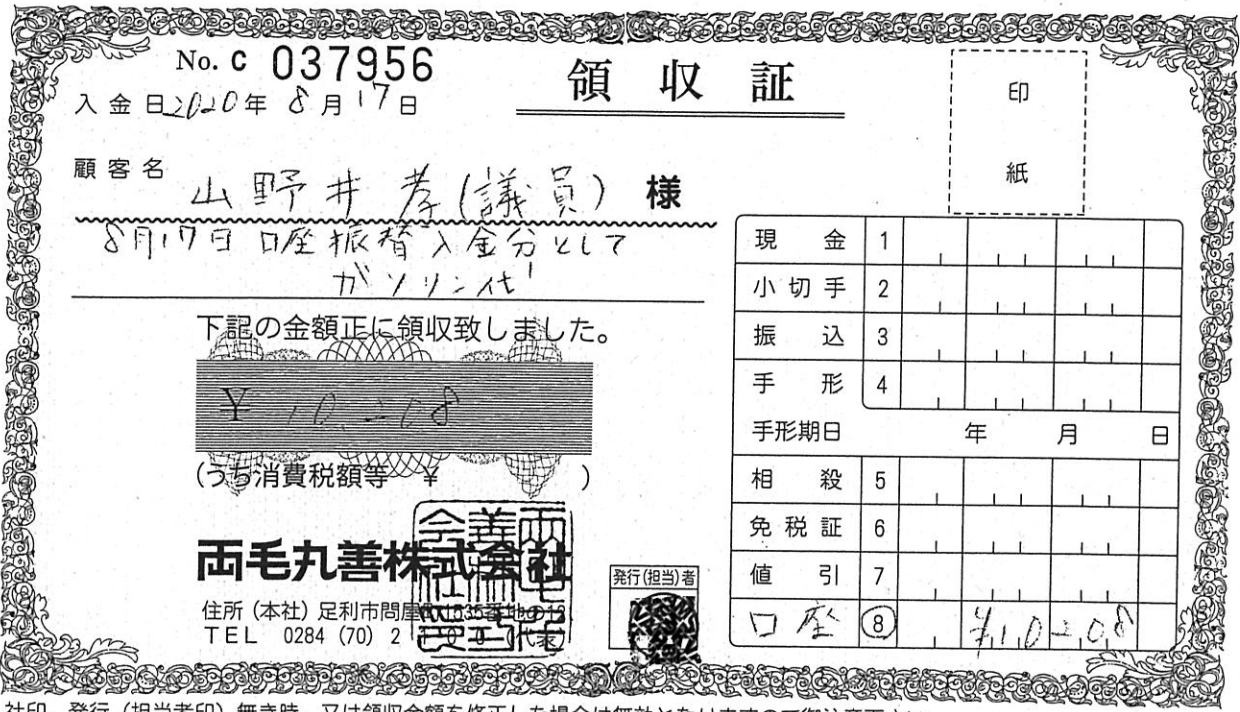 No. C 037956
領収証
入金日2020年 8月17日
印紙
顧客名 山野井 孝(議員) 様
8月17日 口座振替入金分として
ガソリン代
下記の金額正に領収致しました。
¥ 10,208
(うち消費税額等 ¥ )
両毛丸善株式会社
住所(本社)足利市問屋
TEL 0284(70)2
発行(担当)者
現金 1
小切手 2
振込 3
手形 4
手形期日 年 月 日
相殺 5
免税証 6
値引 7
口座 ⑧ ¥10208
社印、発行(担当者印)無き時、又は領収金額を修正した場合は無効となりますので御注意下さい